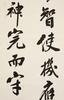 智使機應
神完而守